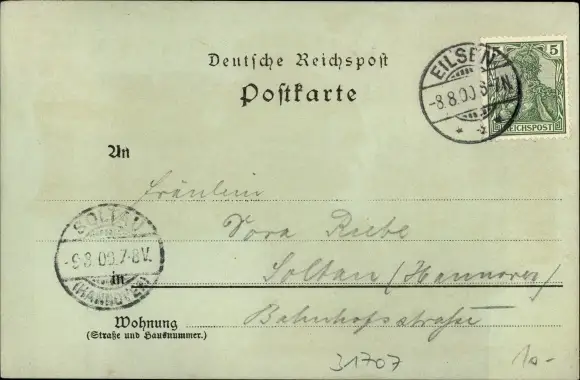 Deutsche Reichspost
Postkarte
EILSEN
-8.8.00 6-7N.
5 5
REICHSPOST
An
Fräulein
Dora Riebe
SOLTAU
-9.8.00.7-8V.
(HANNOVER)
in Soltau (Hannover)
Wohnung Bahnhofsstraße
(Straße und Hausnummer.)
31707
10.-